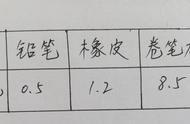 铅笔 橡皮 卷笔
0.5 1.2 8.5